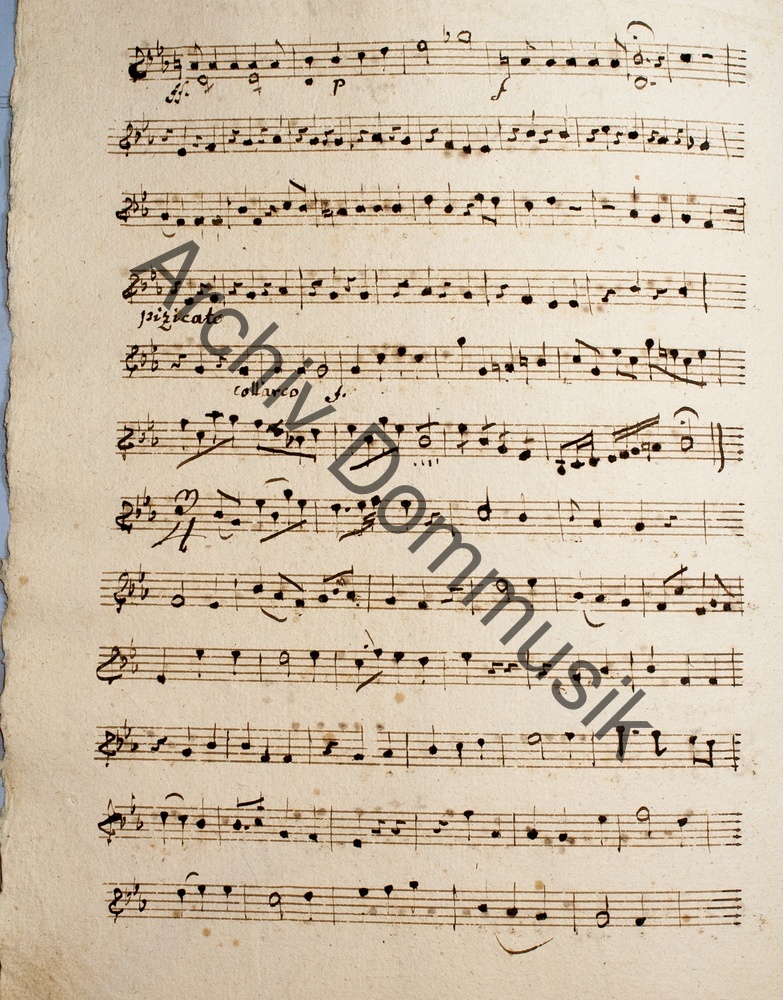 ff. p f
pizicato
coll'arco f.
3
4
Archiv Dommusik